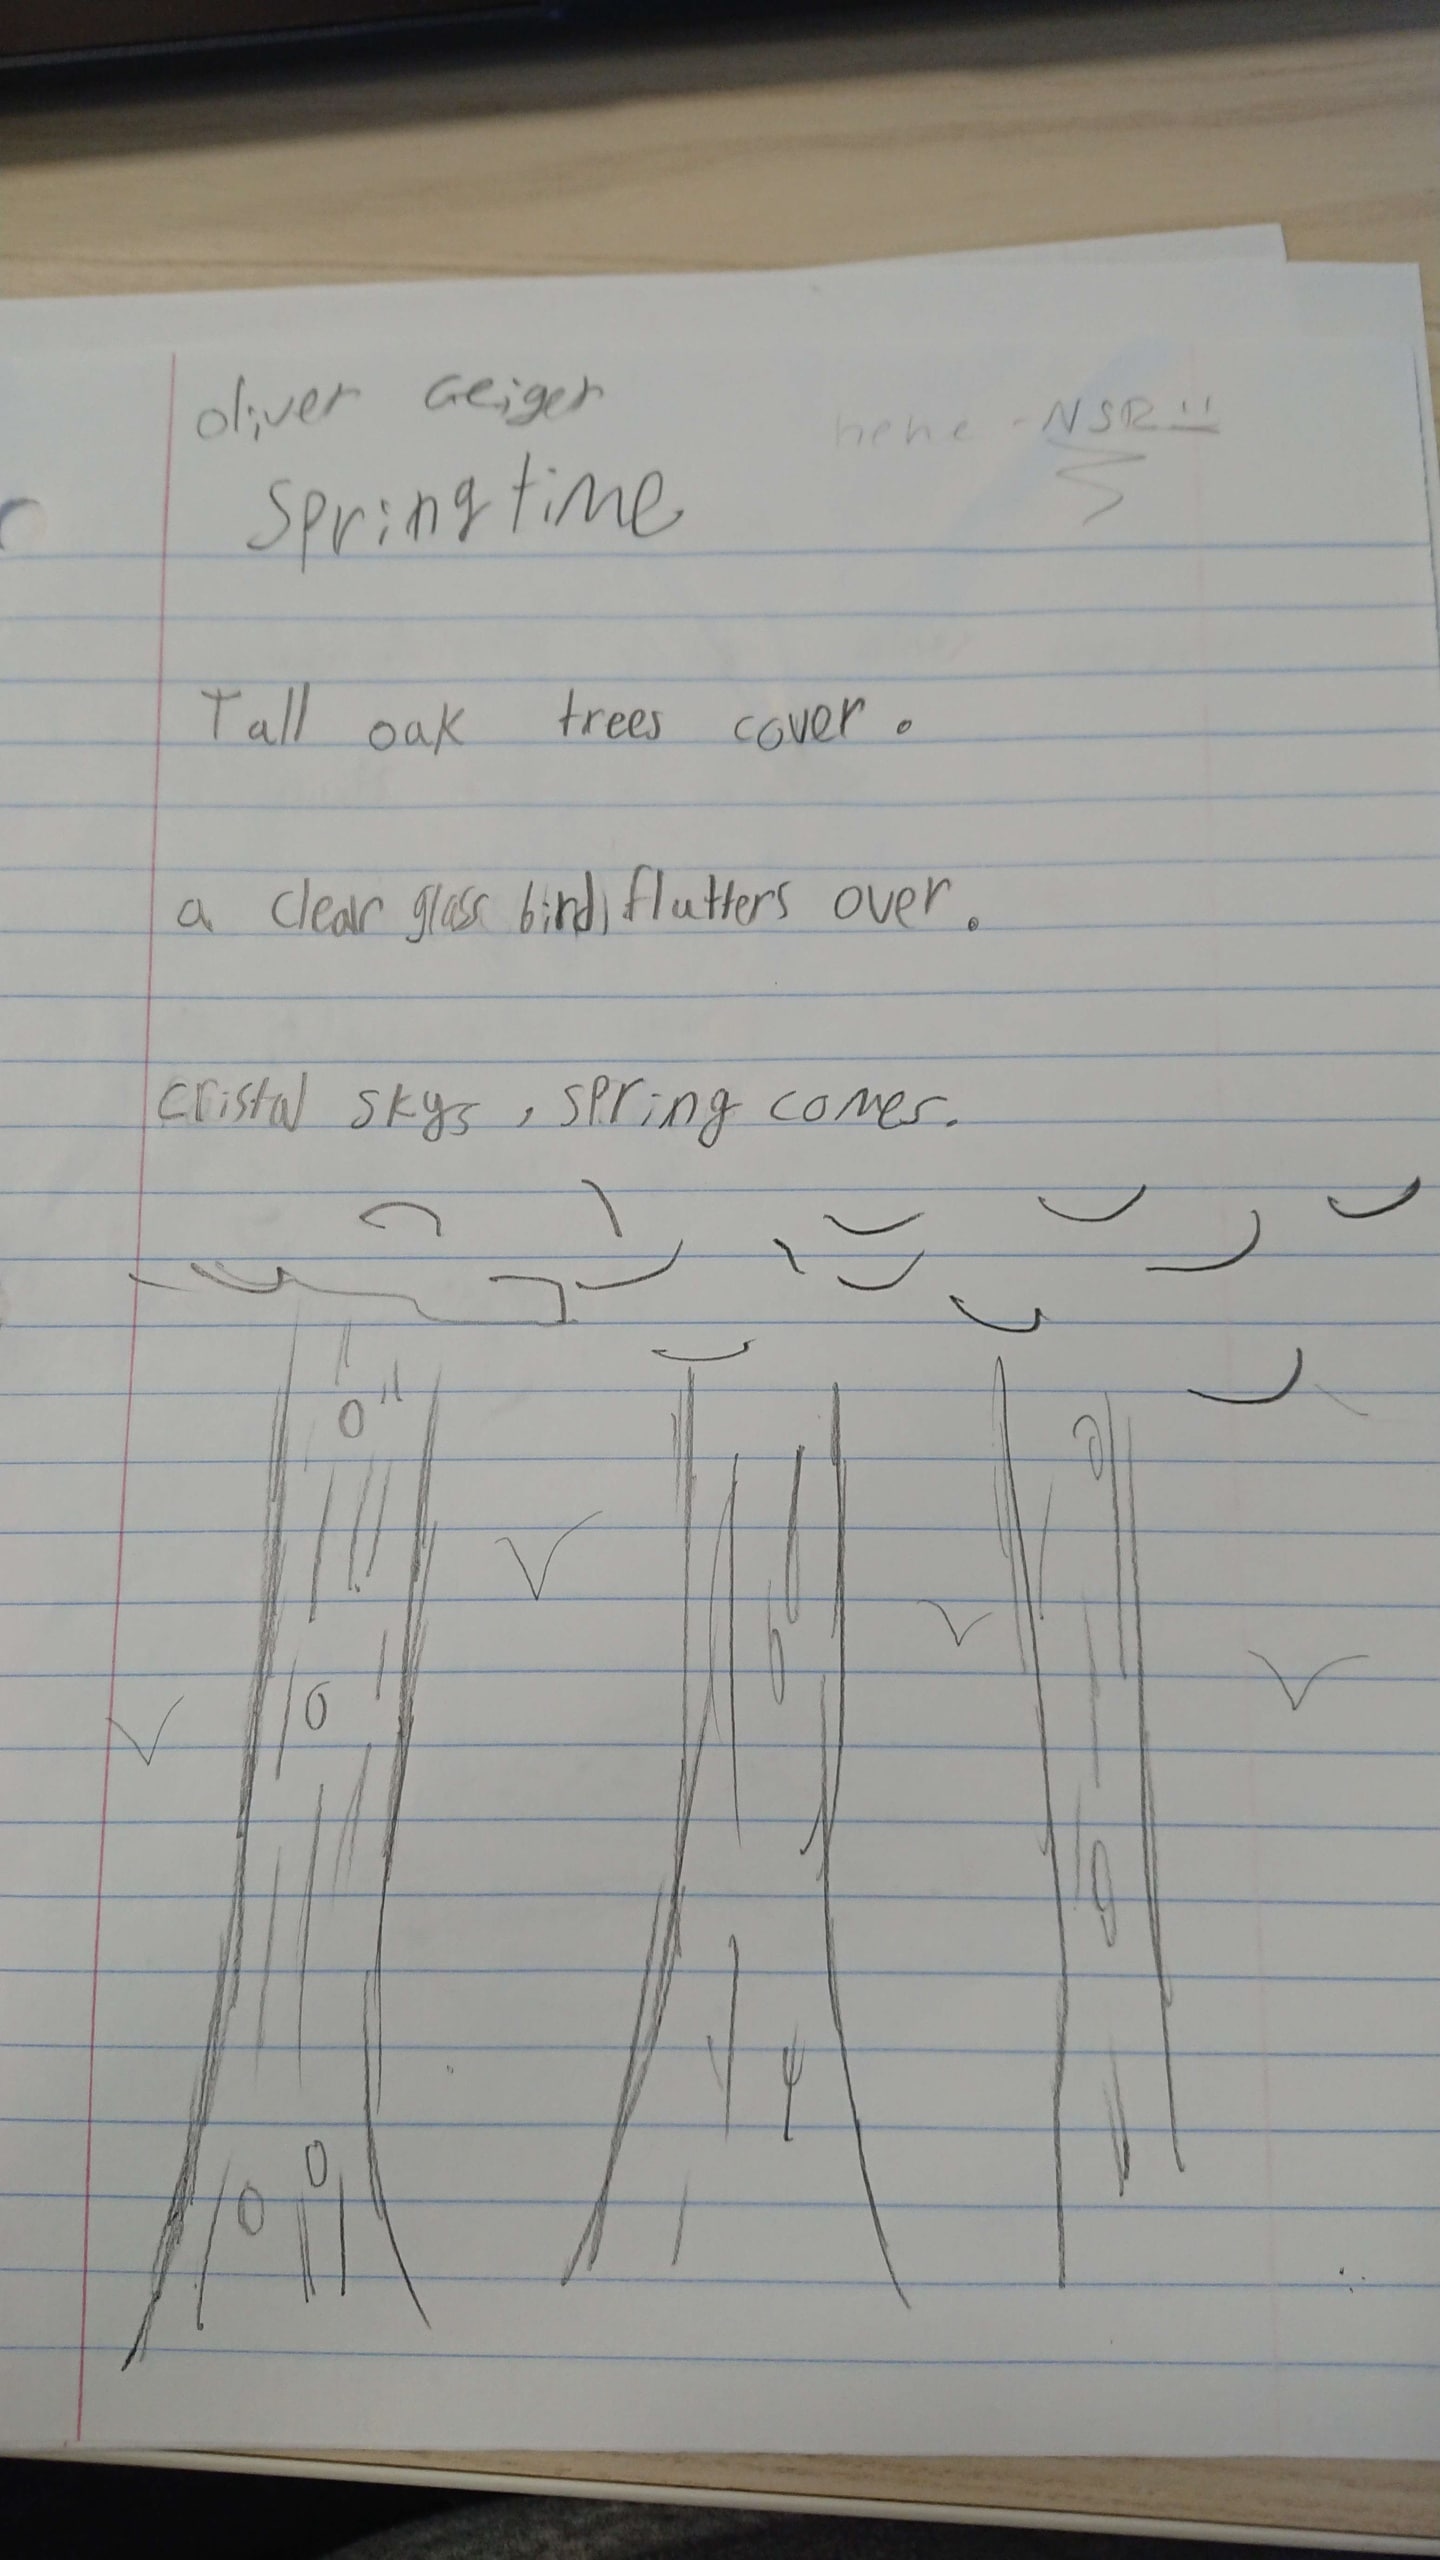 oliver Geiger
hehe - NSR
Springtime
Tall oak trees cover.
a clear glass bird, flutters over.
cristal skys, spring comes.